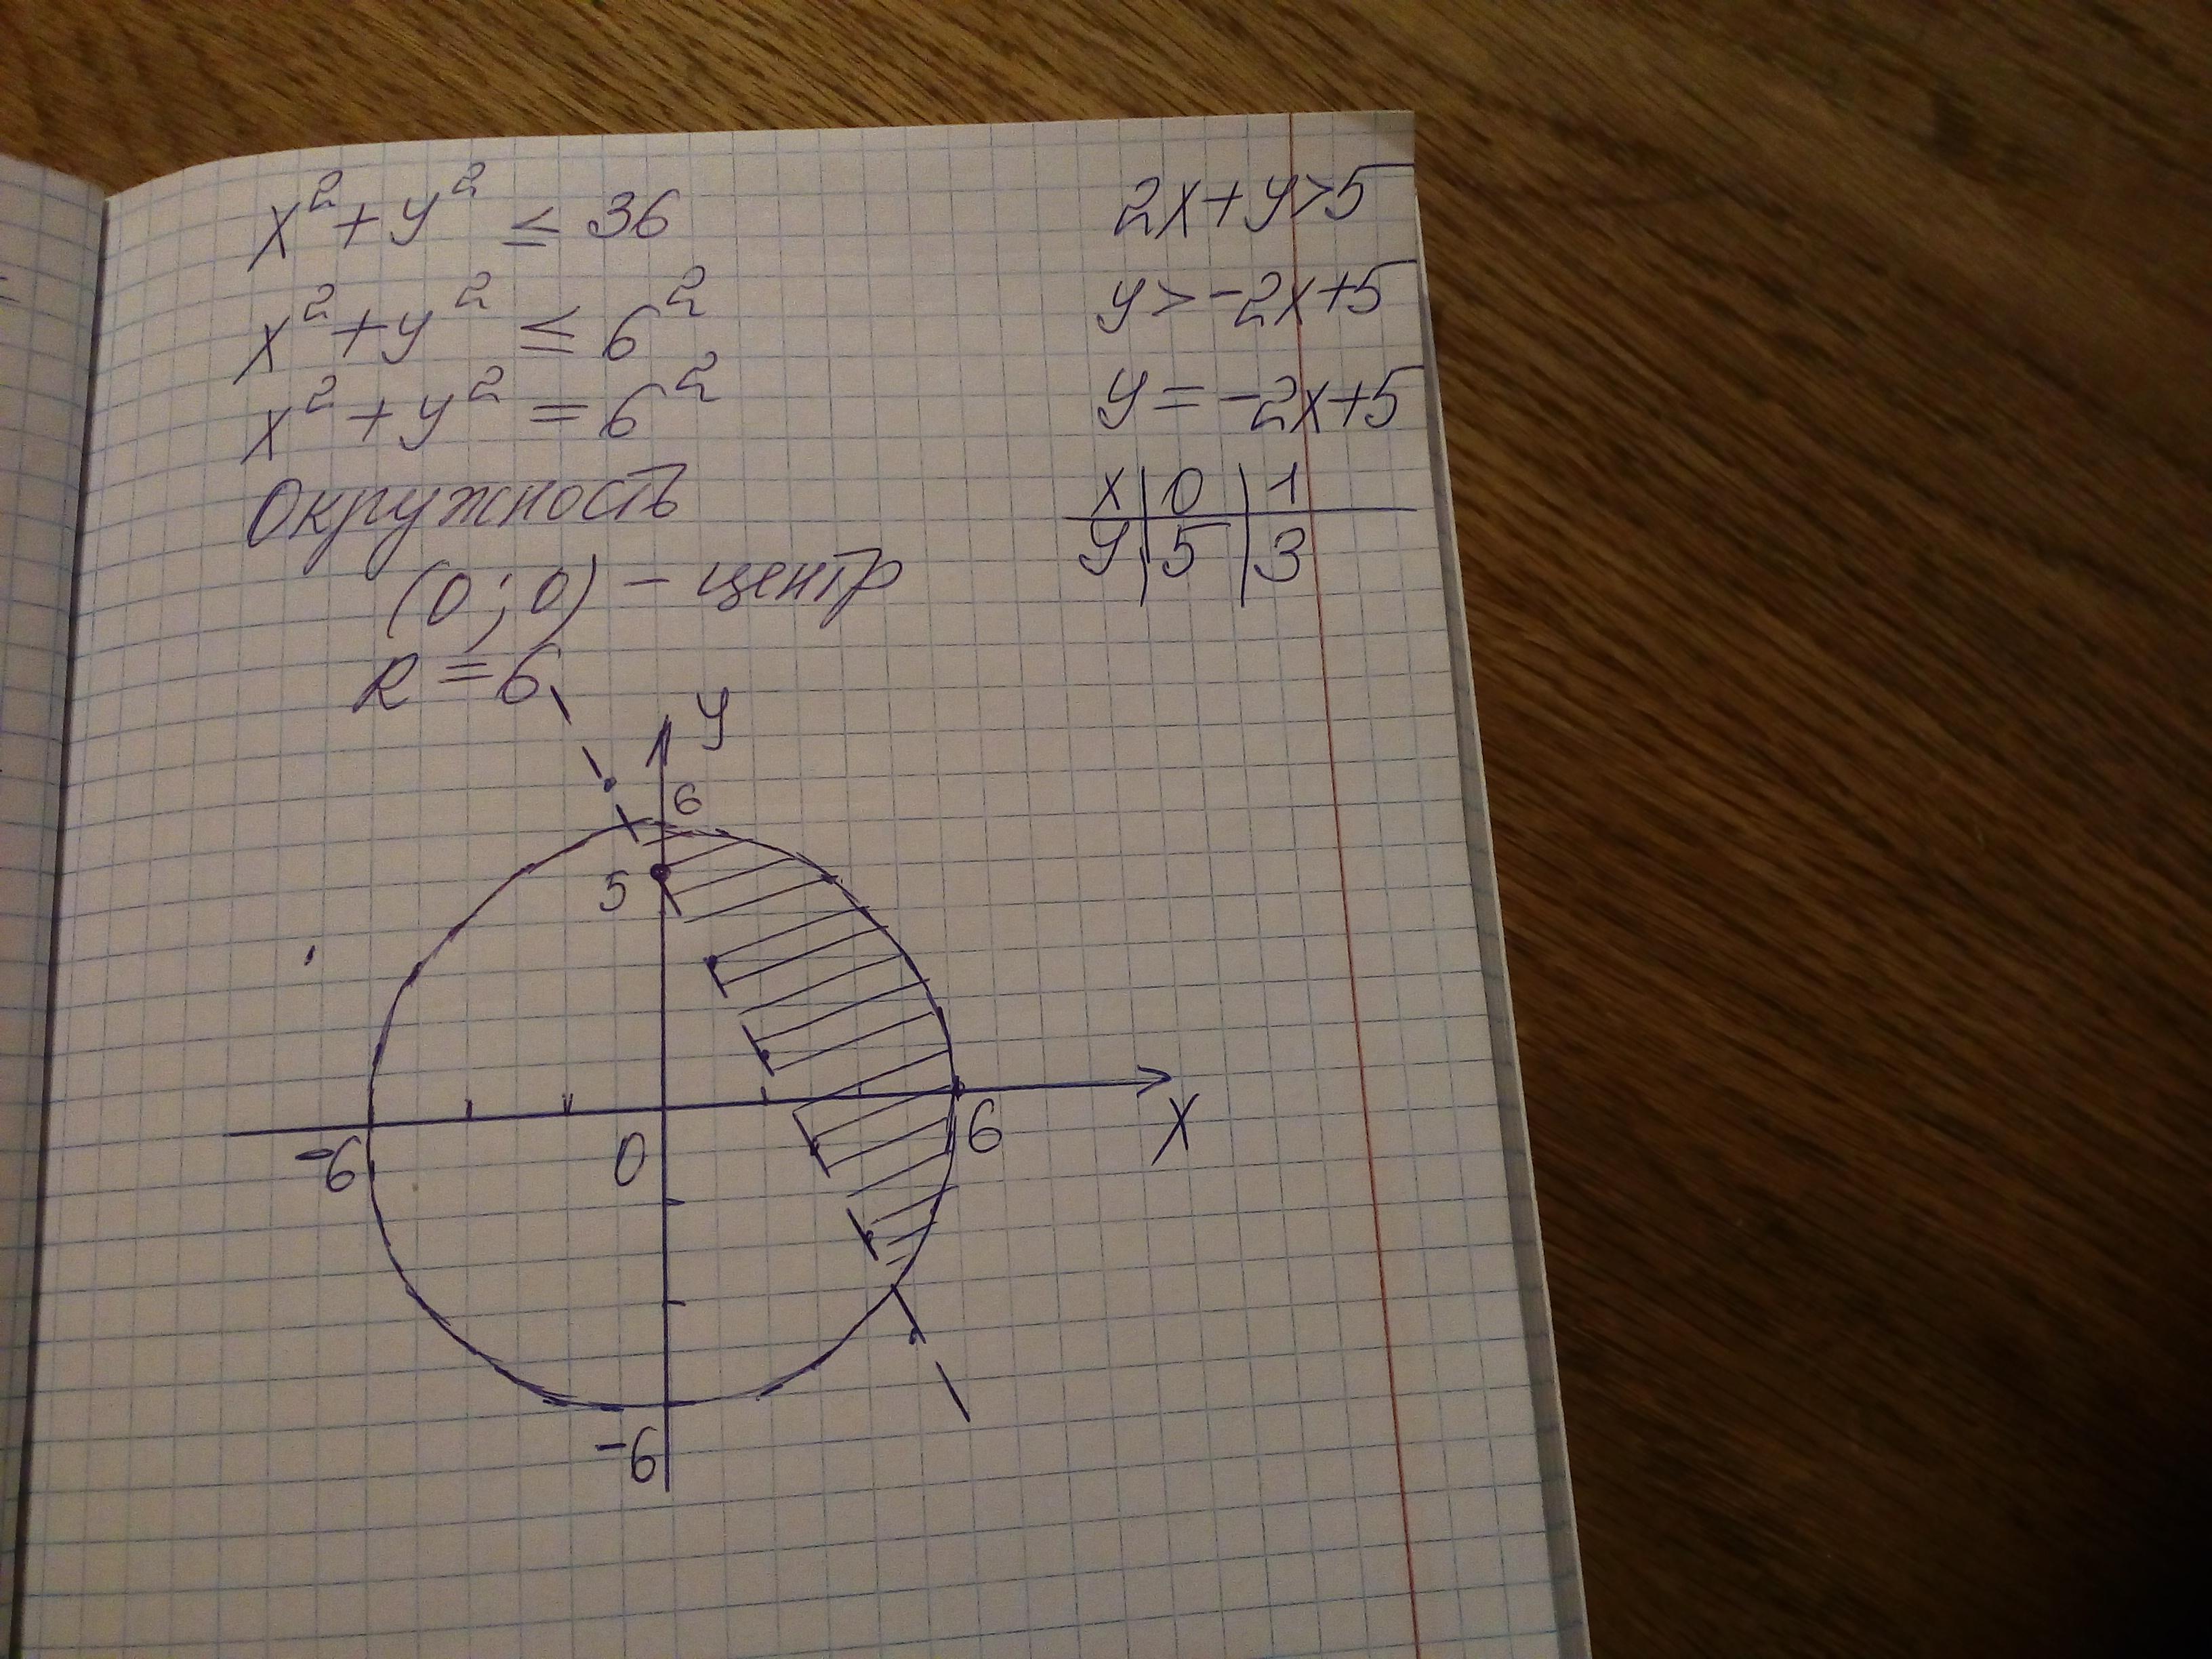 x² + y² ≤ 36
x² + y² ≤ 6²
x² + y² = 6²
Окружность
(0; 0) – центр
R = 6
2x+y>5
y>-2x+5
y=-2x+5
x | 0 | 1
y | 5 | 3
y
6
5
-6
0
6
x
-6